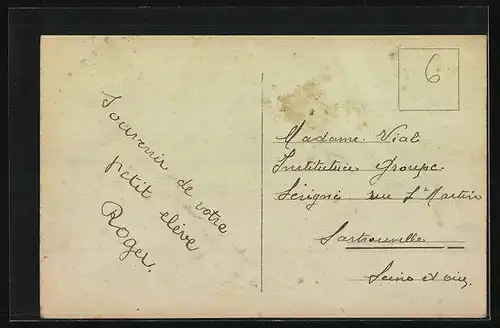 Souvenir de votre
petit élève
Roger.
6
Madame Vial
Institutrice Groupe
Sérigné rue St Martin
Sartrouville
Seine et Oise